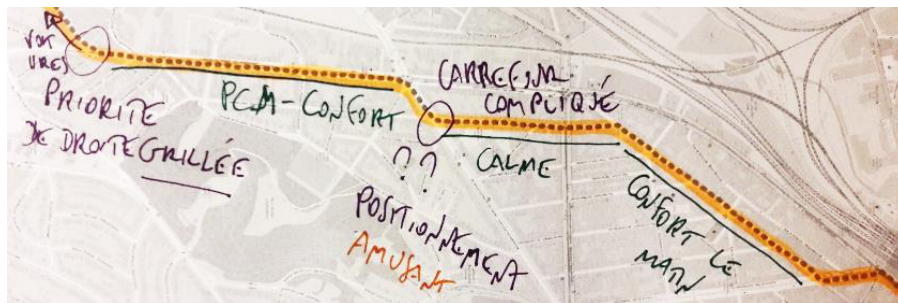 VOIT
URES
PRIORITE
DE DROITE GRILLÉE
CARREFOUR
COMPLIQUÉ
CALME
??
POSITIONNEMENT
AMUSANT
CONFORT LE
MATIN